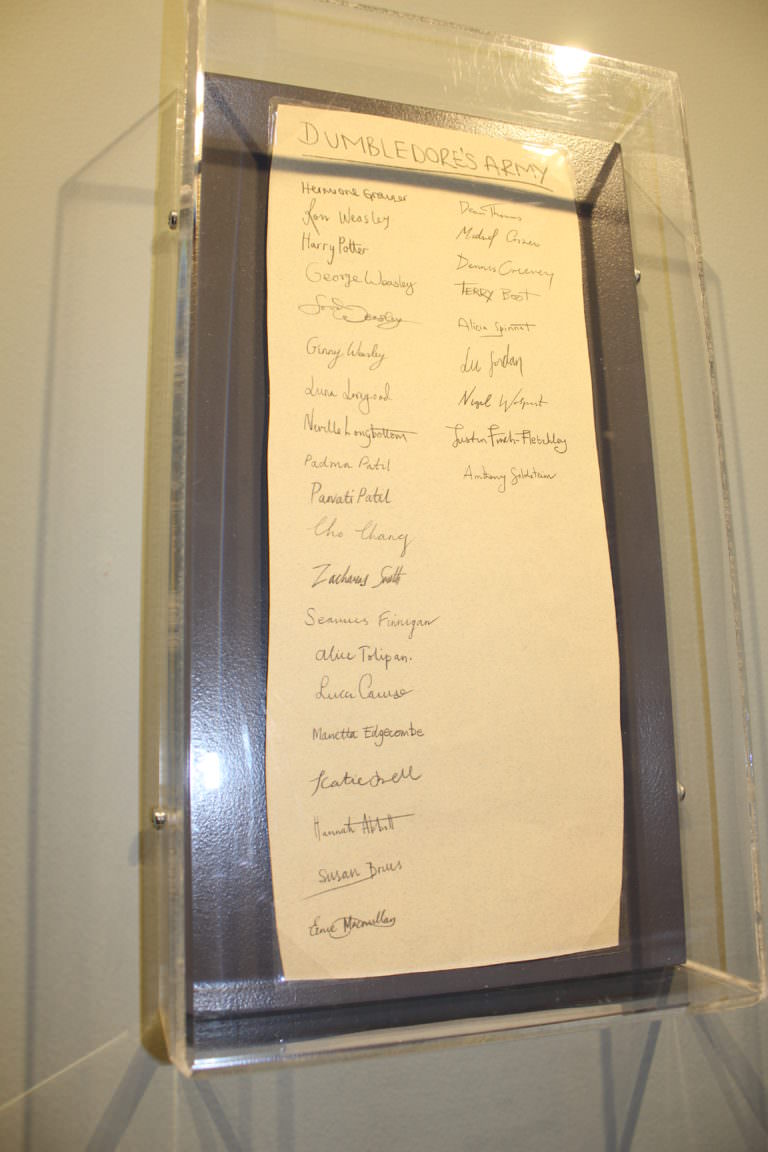 DUMBLEDORE'S ARMY
Hermione Granger
Ron Weasley
Harry Potter
George Weasley
Weasley
Ginny Weasley
Luna Lovegood
Neville Longbottom
Padma Patil
Parvati Patil
Cho Chang
Zacharias Smith
Seamus Finnigan
Alice Tolipan.
Luca Caruso
Marietta Edgecombe
Katie Bell
Hannah Abbott
Susan Bones
Ernie Macmillan
Dean Thomas
Michael Corner
Dennis Creevey
TERRY BOOT
Alicia Spinnet
Lee Jordan
Nigel Wolpert
Justin Finch-Fletchley
Anthony Goldstein